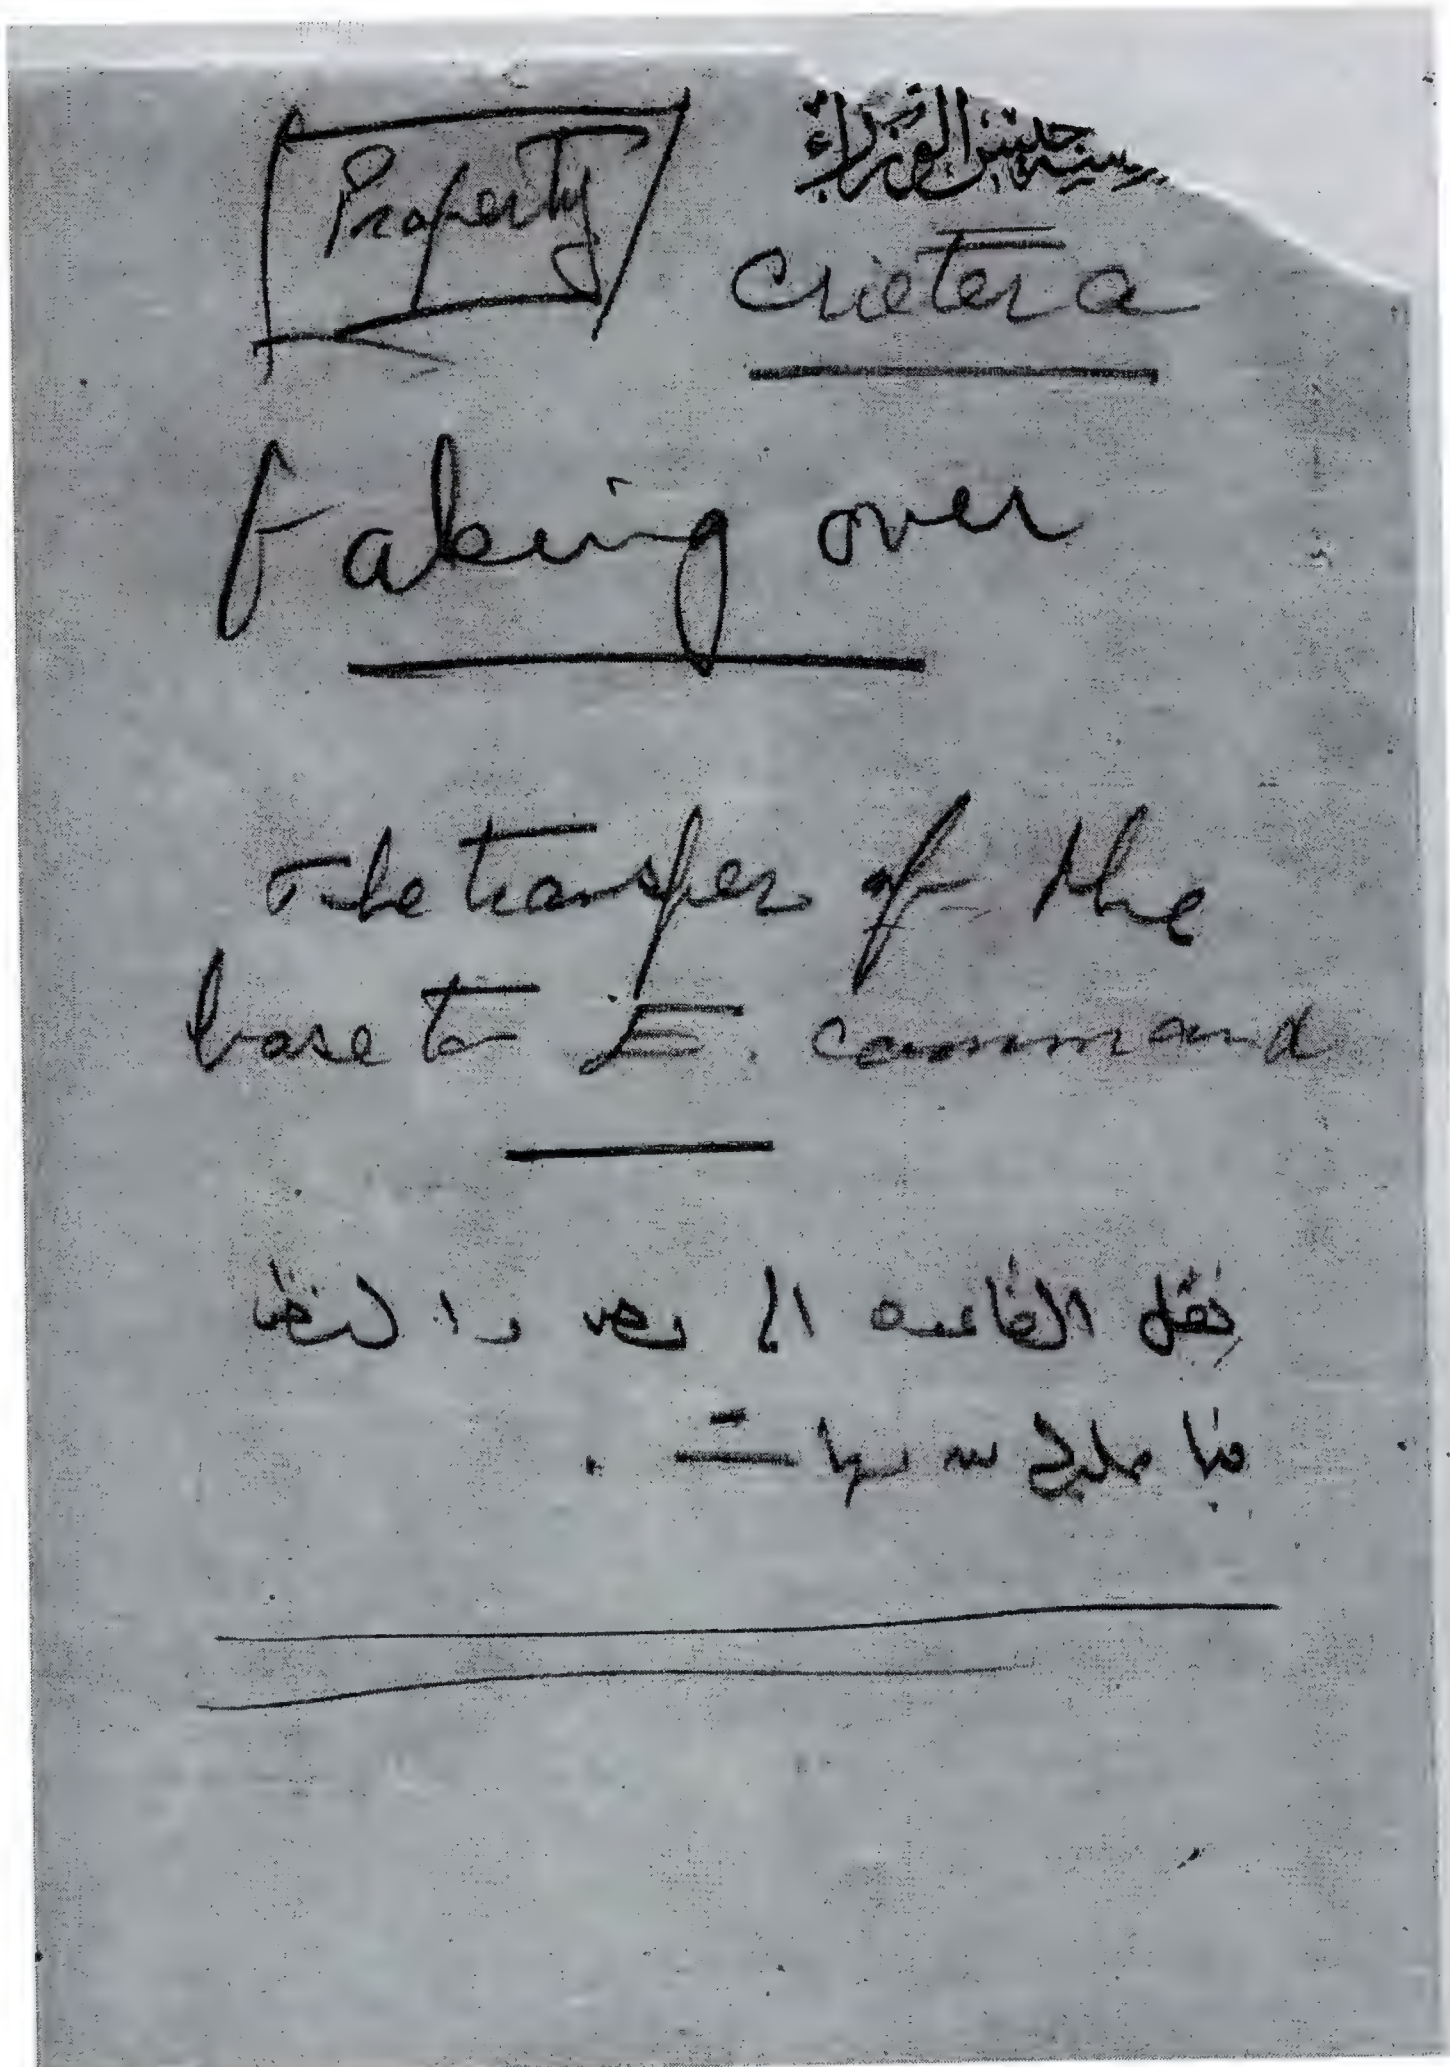 Property
رئيس مجلس الوزراء
Crietera
taking over
The transfer of the
base to E. command
نقل القاعده الى